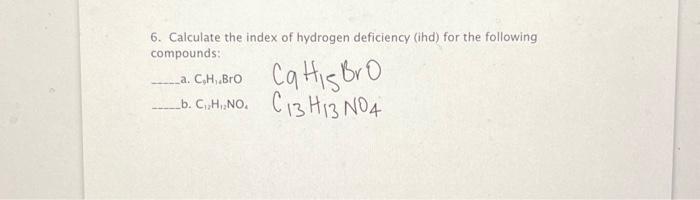 6. Calculate the index of hydrogen deficiency (ihd) for the following
compounds:
_____a. C₉H₁₅BrO C9H15BrO
_____b. C₁₃H₁₃NO₄ C13H13NO4